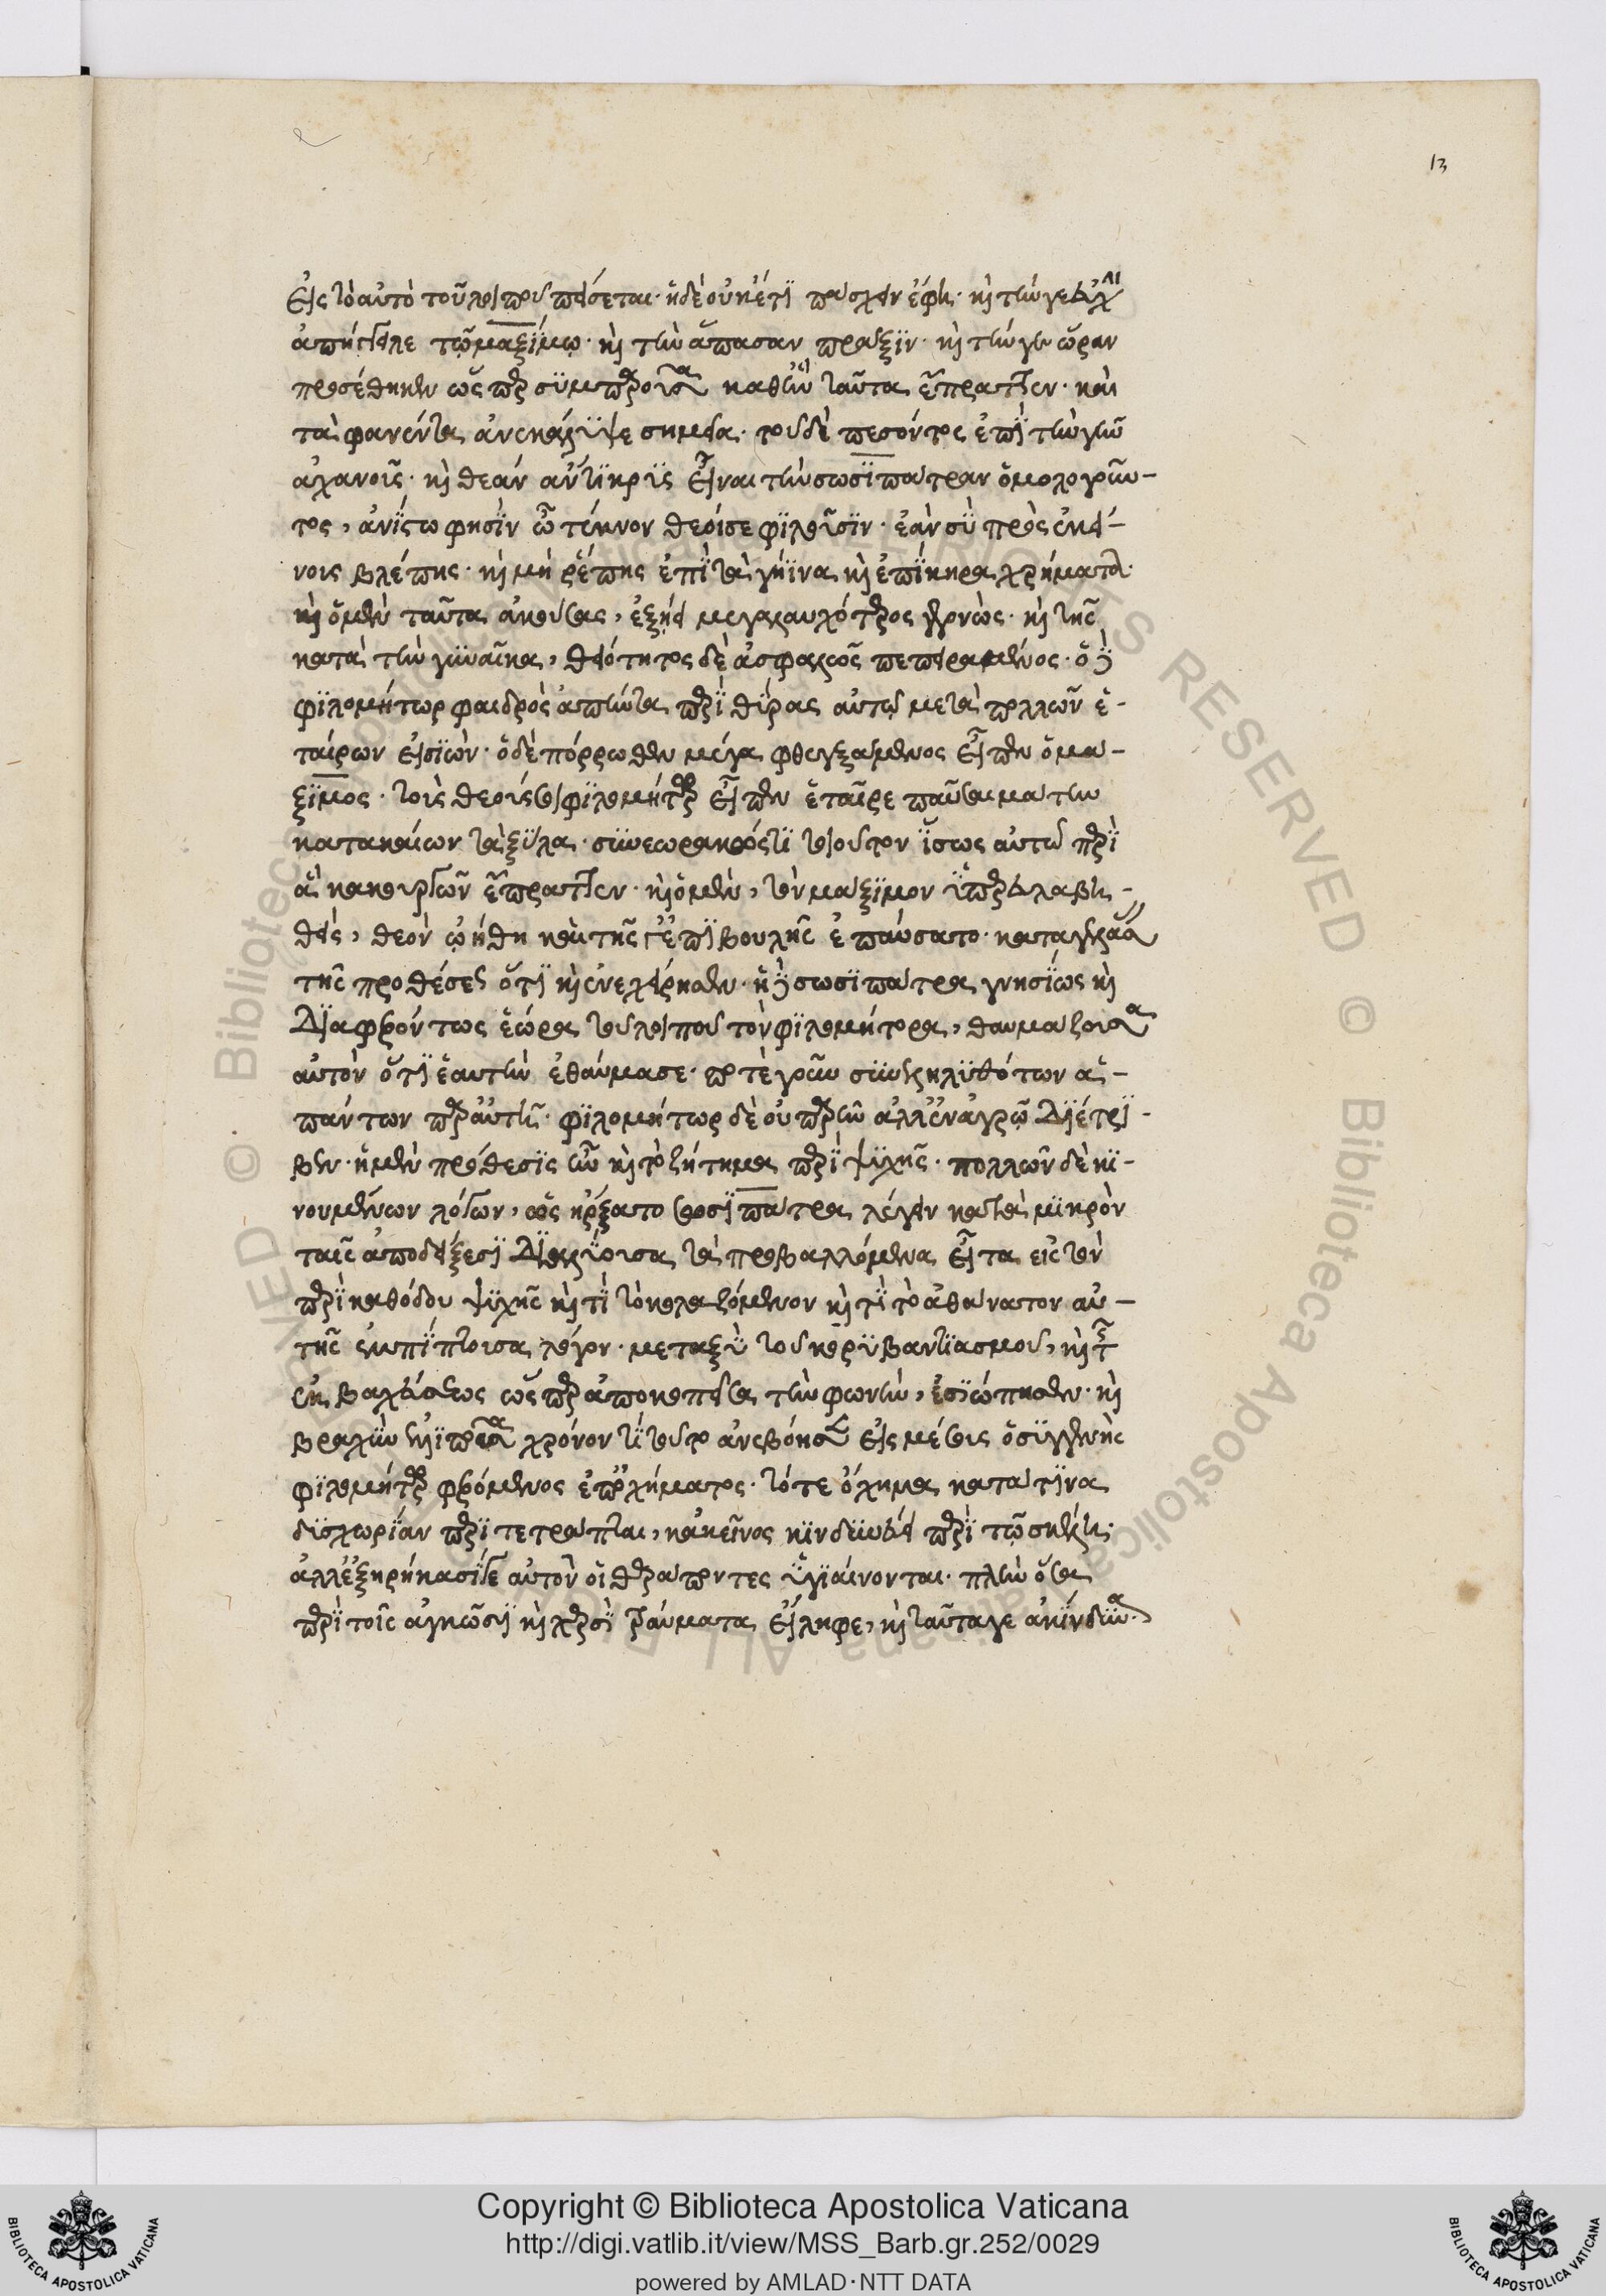 13
εἰς τὸ αὐτὸ τοῦ λοιποῦ πείσεται. ἡ δὲ οὐκέτι πάσχειν ἔφη. καὶ τήν γε εὐχὴν
ἀπήγγειλε τῷ μαξίμῳ. καὶ τὴν ἅπασαν πρᾶξιν. καὶ τήν γε ὥραν
προσέθηκεν ὡς περ συμπαροῦσα καθ' ἣν ταῦτα ἔπραττεν. καὶ
τὰ φανέντα ἀνεκάλυψε σημεῖα. τοῦ δὲ πεσόντος ἐπὶ τὴν γῆν
ἀχανοῦς. καὶ θεὰν ἄντικρυς εἶναι τὴν σωσιπάτραν ὁμολογοῦν-
τος, ἀνίστω φησὶν ὦ τέκνον θεοί σε φιλοῦσιν. ἐὰν σὺ πρὸς ἐκεί-
νους βλέπης. καὶ μὴ ῥέπης ἐπὶ τὰ γήινα καὶ ἐπίκηρα χρήματα.
καὶ ὁ μὲν ταῦτα ἀκούσας, ἐξῄει μεγαλαυχότερος γεγονώς. καὶ τῆς
κατὰ τὴν γυναῖκα, θειότητος δὲ ἀσφαλῶς πεπειραμένος. ὁ δὲ
φιλομήτωρ φαιδρὸς ἀπήντα περὶ θύρας αὐτῷ μετὰ πολλῶν ἑ-
ταίρων εἰσιών. ὁ δὲ πόρρωθεν μέγα φθεγξάμενος εἶπεν ὁ μά-
ξιμος. τοὺς θεούς σοι φιλομήτωρ εἶπεν ἑταῖρε παῦσαι μάτην
κατακαίων τὰ ξύλα. συνεωρακώς τι τοιοῦτον ἴσως αὐτῷ περὶ
ἃ κακουργῶν ἔπραττεν. καὶ ὁ μὲν, τὸν μάξιμον ὑπερευλαβη-
θεὶς, θεὸν ᾠήθη καὶ τῆς γ' ἐπιβουλῆς ἐπαύσατο. καταγελάσας
τῆς προθέσεως ὅτι καὶ ἐνεχείρησεν. ἡ δὲ σωσιπάτρα γνησίως καὶ
διαφερόντως ἑώρα τοῦ λοιποῦ τὸν φιλομήτορα, θαυμάζουσα
αὐτὸν ὅτι ἑαυτὴν ἐθαύμασε. ποτὲ γοῦν συνεληλυθότων ἁ-
πάντων παρ' αὐτῇ. φιλομήτωρ δὲ οὐ παρῆν ἀλλ' ἐν ἀγρῷ διέτρι-
βεν. ἡ μὲν πρόθεσις ἦν καὶ τὸ ζήτημα περὶ ψυχῆς. πολλῶν δὲ κι-
νουμένων λόγων, ὡς ἤρξατο σωσιπάτρα λέγειν κατὰ μικρὸν
ταῖς ἀποδείξεσι διαλύουσα τὰ προβαλλόμενα εἶτα εἰς τὸν
περὶ καθόδου ψυχῆς καὶ τί τὸ κολαζόμενον καὶ τί τὸ ἀθάνατον αὐ-
τῆς ἐμπίπτουσα λόγον. μεταξὺ τοῦ κορυβαντιασμοῦ, καὶ τῆς
ἐκβακχεύσεως ὥσπερ ἀποκοπεῖσα τὴν φωνὴν, ἐσιώπησεν. καὶ
βραχὺν λιποῦσα χρόνον τι τοῦτο ἀνεβόησεν εἰς μέσους ὁ συγγενὴς
φιλομήτωρ φερόμενος ἐπ' ὀχήματος. τό τε ὄχημα κατά τινα
δυσχωρίαν περιτέτραπται, κἀκεῖνος κινδυνεύει περὶ τὼ σκέλη.
ἀλλ' ἐξῃρήκασί γε αὐτὸν οἱ θεράποντες ὑγιαίνοντα. πλὴν ὅσα
περὶ τοῖς ἀγκῶσι καὶ χερσὶ τραύματα εἴληφε, καὶ ταῦτά γε ἀκίνδυνα.